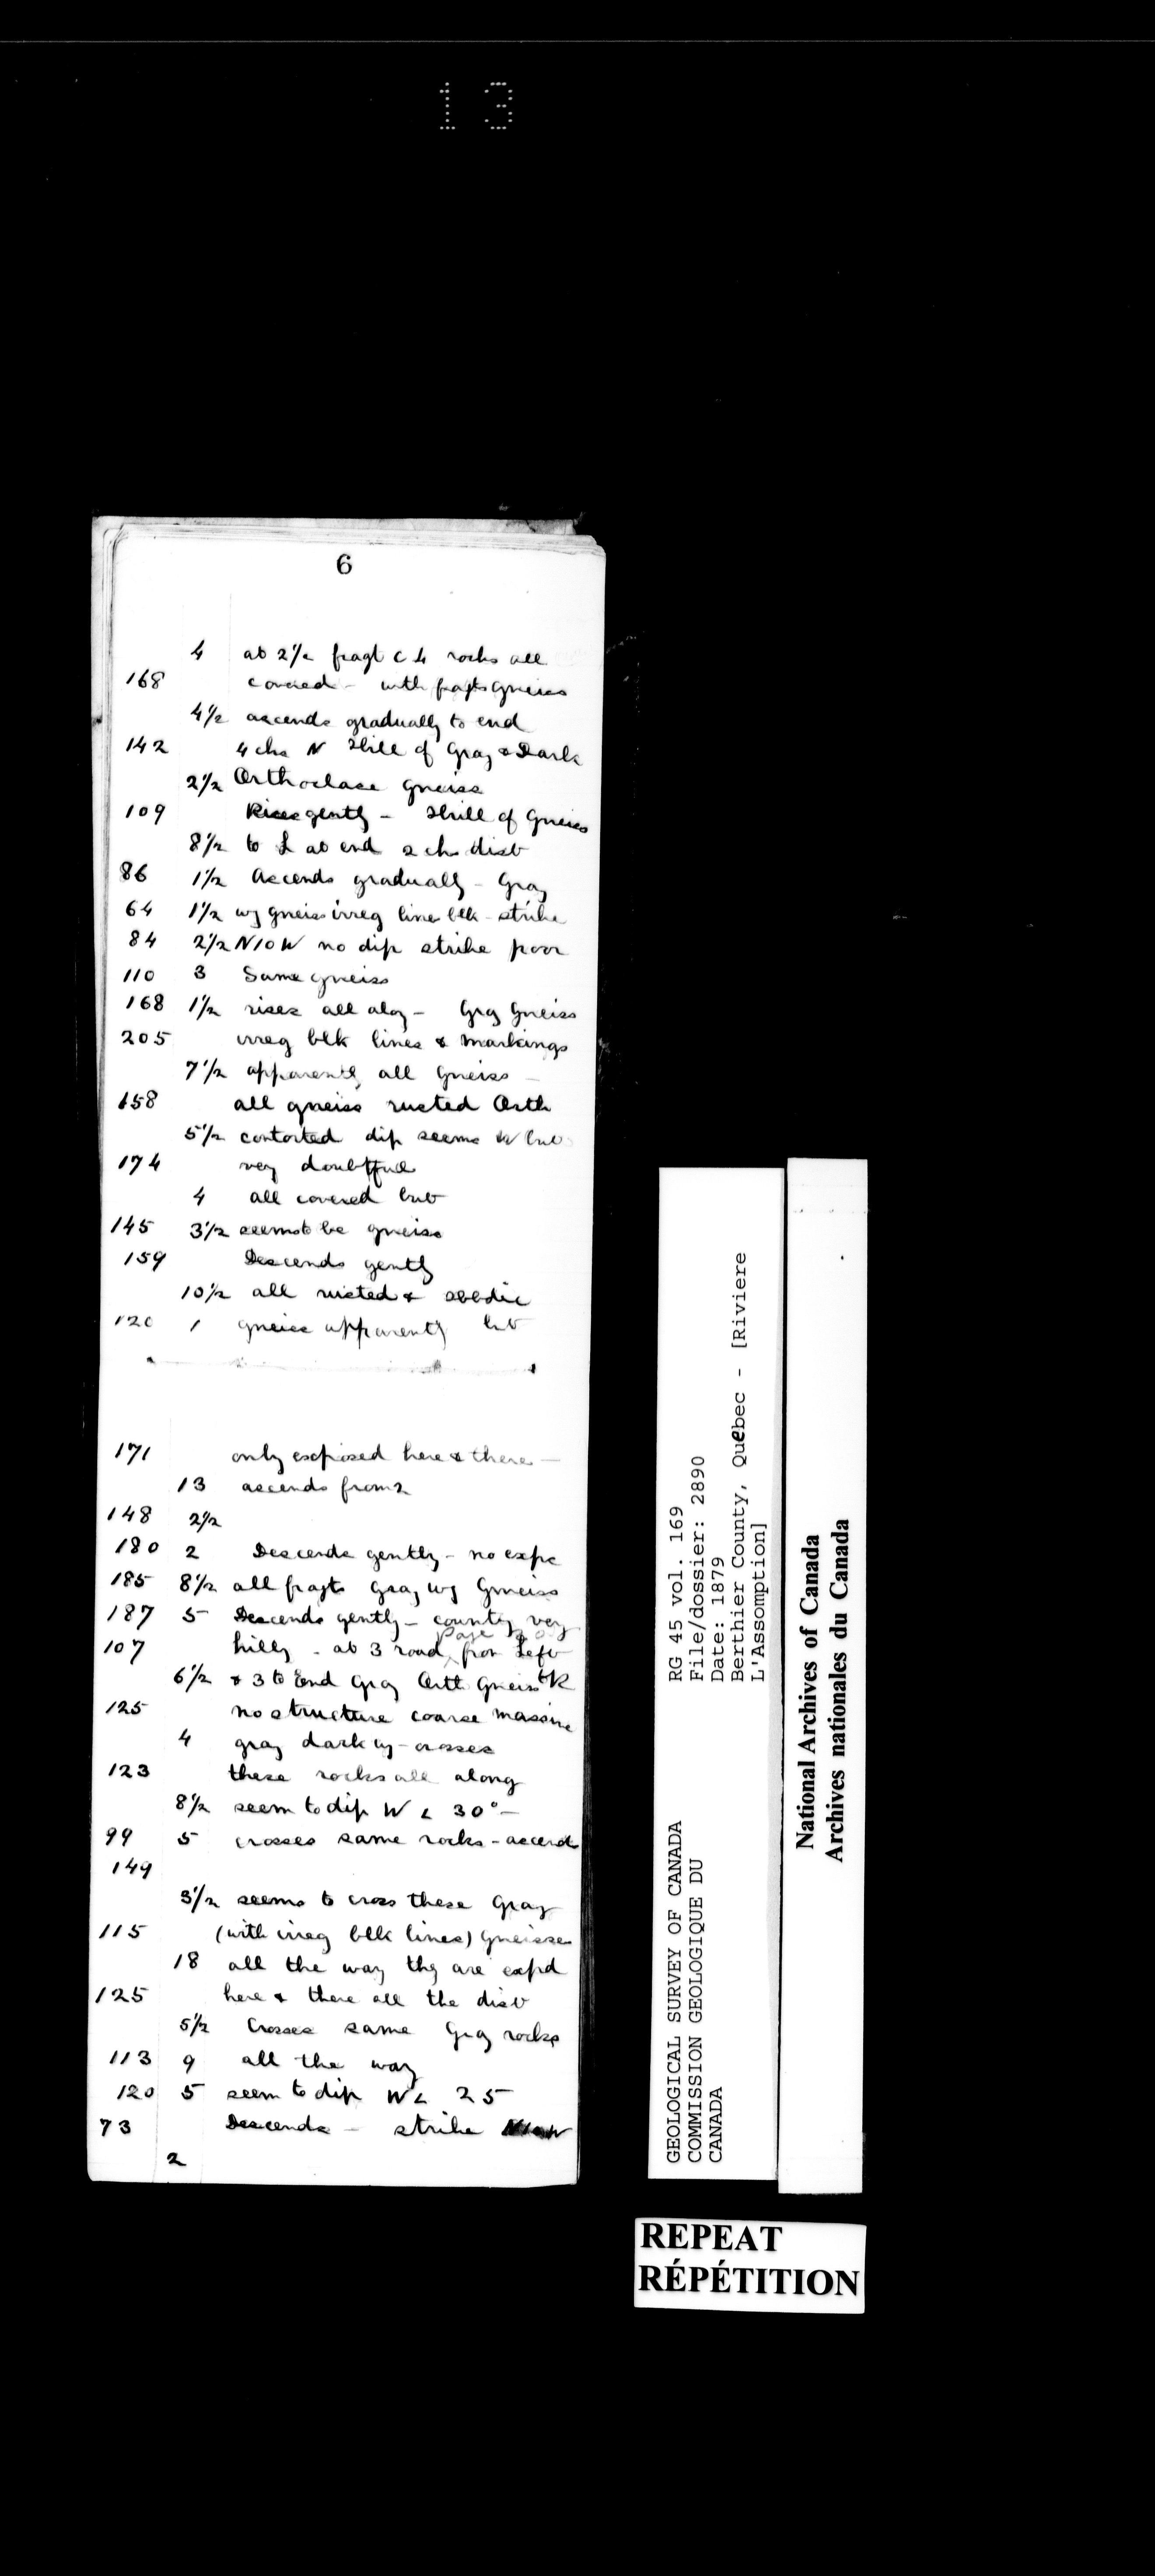 13
6
4 at 2½ fragt c h rocks all
168 covered - with fragts gneiss
4½ ascends gradually to end
142 4 chs N Hill of Gray & Dark
2½ Orthoclase gneiss
109 Rises gently - Hill of Gneiss
8½ to L at end 2 chs dist
86 1½ Ascends gradually - Gray
64 1½ wy gneiss irreg line blk - strike
84 2½ N10W no dip strike poor
110 3 Same gneiss
168 1½ rises all alog - Gray Gneiss
205 irreg blk lines & markings
7½ apparently all Gneiss -
158 all gneiss rusted Orth
5½ contorted dip seems W but
174 very doubtful
4 all covered but
145 3½ seems to be gneiss
159 Descends gently
10½ all rusted &
120 1 gneiss apparently but
171 only exposed here & there -
13 ascends from 2
148 2½
180 2 Descends gently - no expe
185 8½ all fragts Gray wy Gneiss
187 5 Descends gently - county very
Page
107 hilly - at 3 road from Left
6½ & 3 to End Gray Orth Gneiss
125 no structure coarse massive
4 gray dark wy - crosses
123 these rocks all along
8½ seem to dip W ∠ 30° -
99 5 crosses same rocks - ascends
149
3½ seems to cross these Gray
115 (with irreg blk lines) Gneisses
18 all the way they are expd
125 here & there all the dist
5½ Crosses same Gray rocks
113 9 all the way
120 5 seem to dip W ∠ 25
73 Descends - strike
2
GEOLOGICAL SURVEY OF CANADA
COMMISSION GEOLOGIQUE DU
CANADA
RG 45 vol. 169
File/dossier: 2890
Date: 1879
Berthier County, Quebec - [Riviere
L'Assomption]
National Archives of Canada
Archives nationales du Canada
REPEAT
RÉPÉTITION